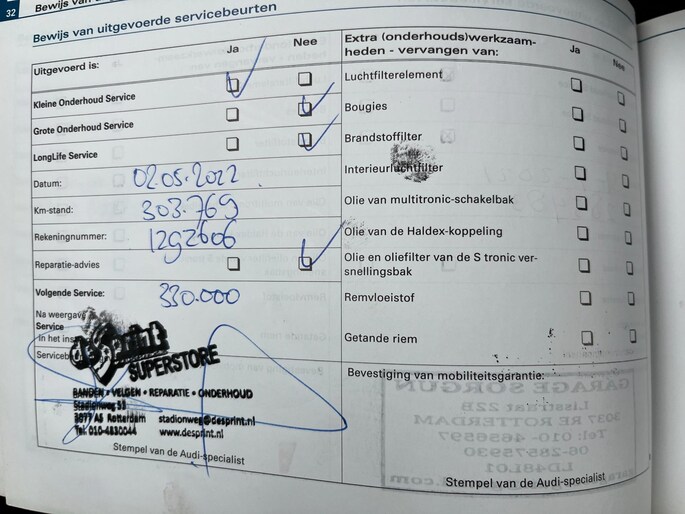 32
Bewijs van
Bewijs van uitgevoerde servicebeurten
Uitgevoerd is:
Ja
Nee
Kleine Onderhoud Service
Grote Onderhoud Service
LongLife Service
Datum: 02.05.2022
Km-stand: 303.769
Rekeningnummer: 1292606
Reparatie-advies
Volgende Service: 330.000
Na weergave
Service
in het ins
Servicebe
desprint
SUPERSTORE
BANDEN • VELGEN • REPARATIE • ONDERHOUD
Stadionweg 33
3077 AS Rotterdam stadionweg@desprint.nl
Tel. 010-4830044 www.desprint.nl
Stempel van de Audi-specialist
Extra (onderhouds)werkzaam-
heden - vervangen van:
Ja
Nee
Luchtfilterelement
Bougies
Brandstoffilter
Interieurluchtfilter
Olie van multitronic-schakelbak
Olie van de Haldex-koppeling
Olie en oliefilter van de S tronic ver-
snellingsbak
Remvloeistof
Getande riem
Bevestiging van mobiliteitsgarantie:
GARAGE SORGUN
22B
3037 RE ROTTERDAM
Tel: 010-4656597
06-28575930
Stempel van de Audi-specialist